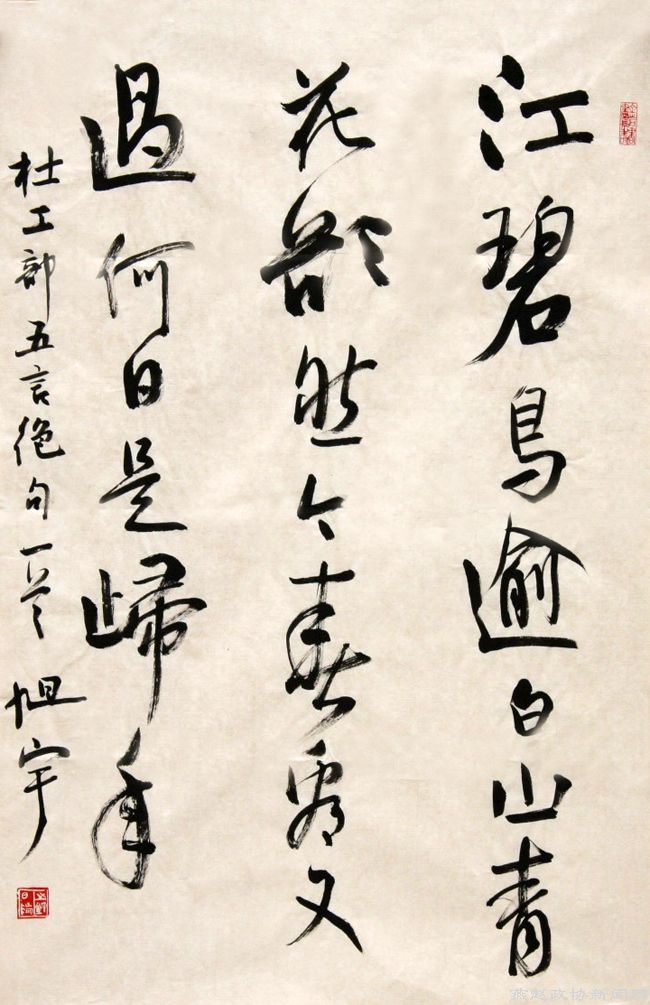 江碧鳥逾白山青
花欲然今春看又
過何日是歸年
杜工部五言絕句一首 旭宇
燕赵政协新闻网